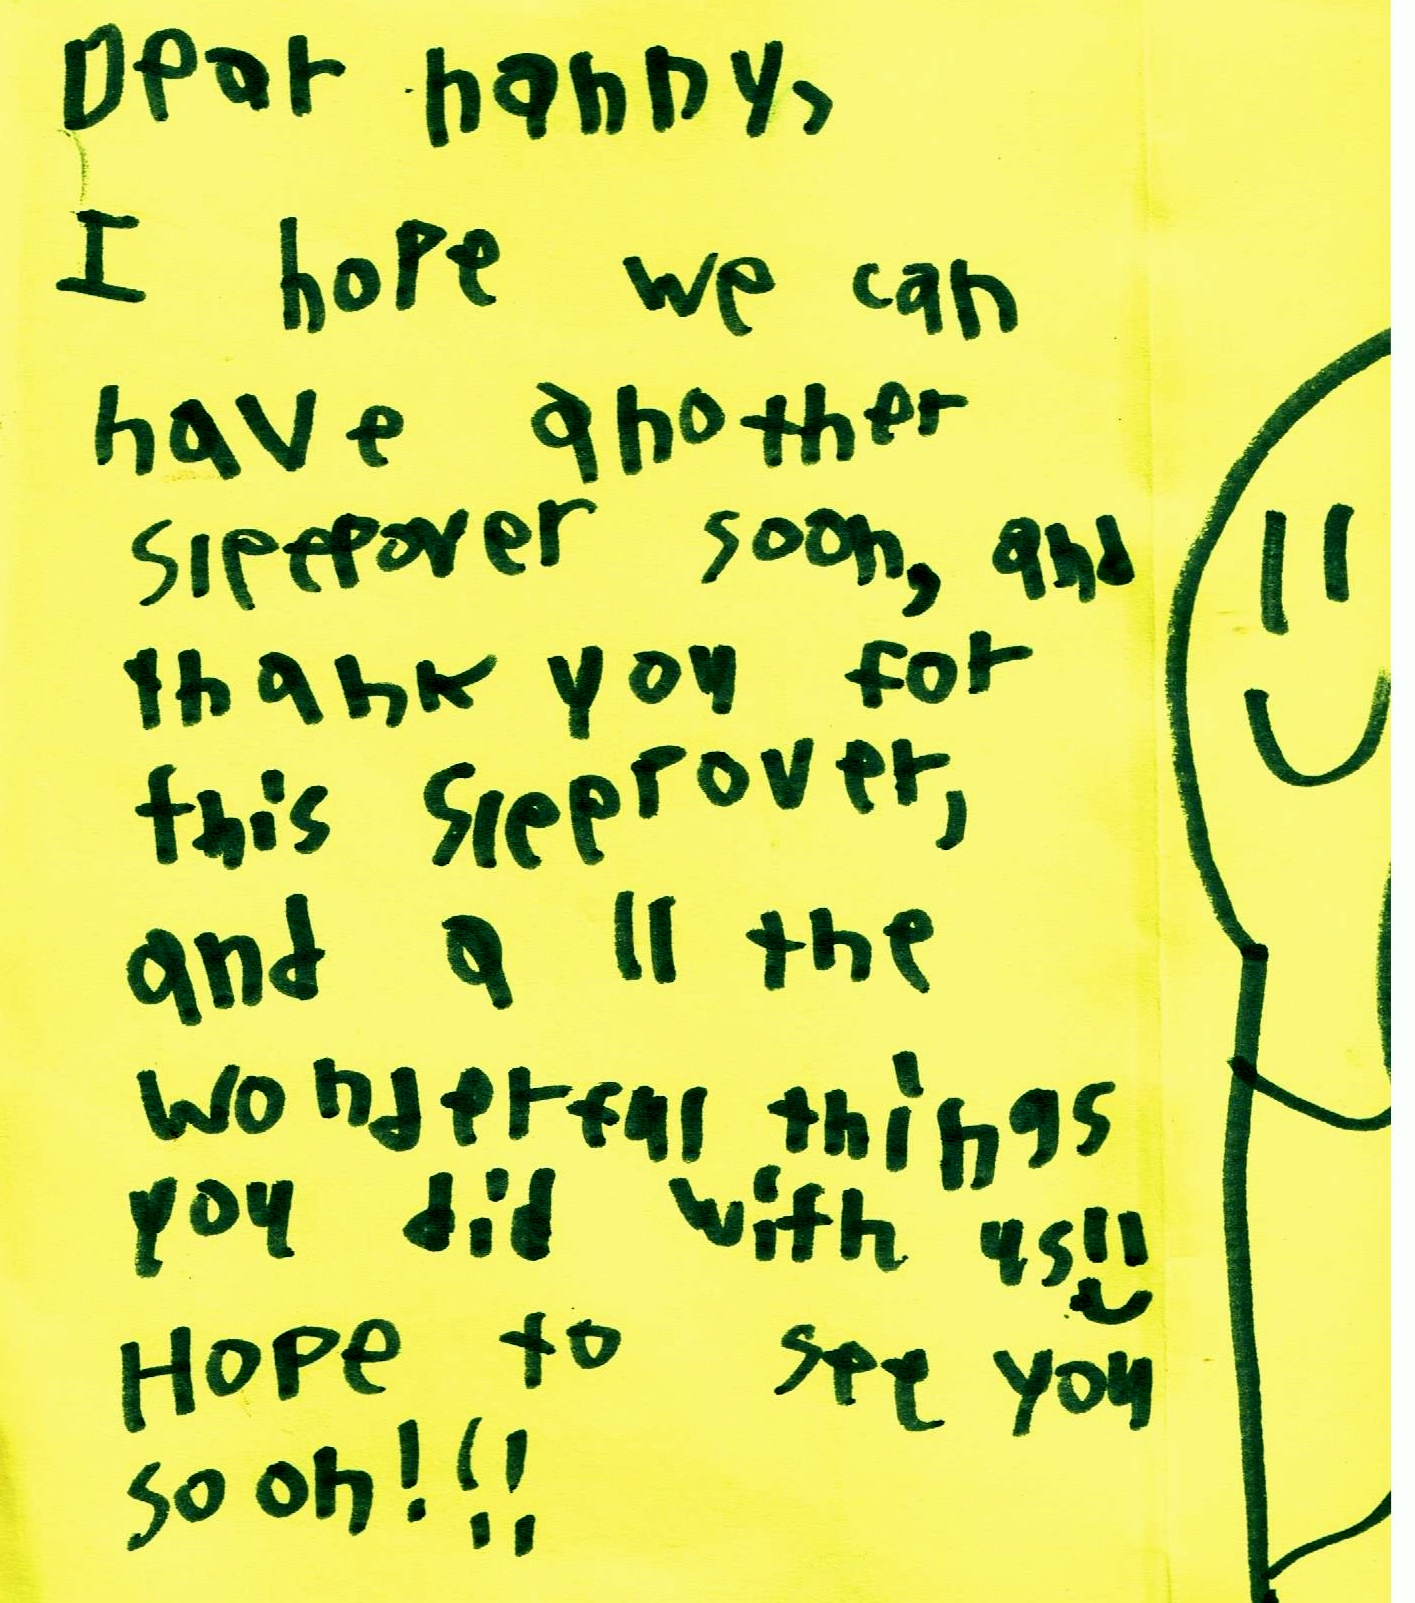 Dear nanny,
I hope we can
have another
sleepover soon, and
thank you for
this sleepover,
and all the
wonderful things
you did with us!!
Hope to see you
soon!!!